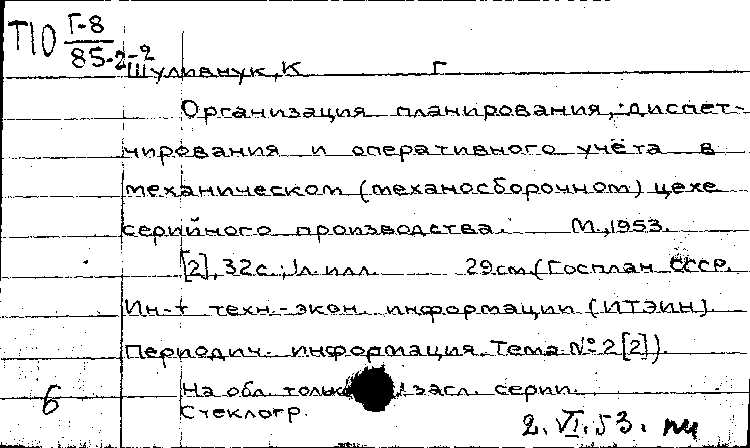 Т10 Г-8
85-2-2
Шуливнук, К Г
Организация планирования, диспет-
чирования и оперативного учёта в
механическом (механосборочном) цехе
серийного производства. М., 1953.
[2], 32с.; 1л. илл. 29см. (Госплан СССР.
Ин-т техн.-экон. информации (ИТЭИН).
Периодич. информация. Тема № 2 [2]).
На обл. только загл. серии.
Стеклогр.
6
2.VI.53.